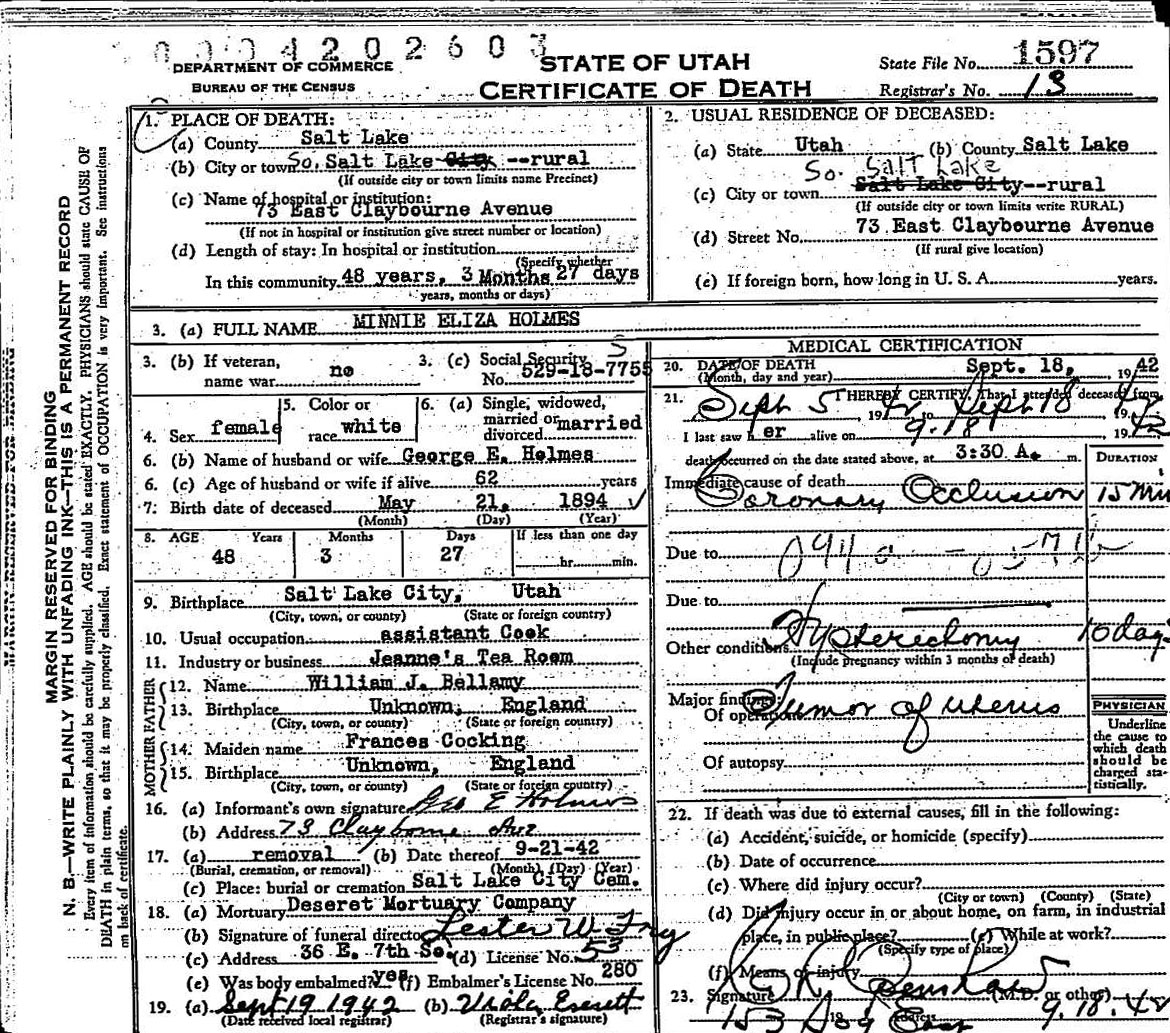 0004202603
DEPARTMENT OF COMMERCE
BUREAU OF THE CENSUS
STATE OF UTAH
CERTIFICATE OF DEATH
State File No. 1597
Registrar's No. 13
MARGIN RESERVED FOR BINDING
N. B.—WRITE PLAINLY WITH UNFADING INK—THIS IS A PERMANENT RECORD
Every item of information should be carefully supplied. AGE should be stated EXACTLY. PHYSICIANS should state CAUSE OF
DEATH in plain terms, so that it may be properly classified. Exact statement of OCCUPATION is very important. See instructions
on back of certificate.
1. PLACE OF DEATH:
(a) County Salt Lake
(b) City or town So. Salt Lake City --rural
(If outside city or town limits name Precinct)
(c) Name of hospital or institution:
73 East Claybourne Avenue
(If not in hospital or institution give street number or location)
(d) Length of stay: In hospital or institution
(Specify whether
In this community 48 years, 3 Months 27 days
years, months or days)
2. USUAL RESIDENCE OF DECEASED:
(a) State Utah (b) County Salt Lake
So. Salt Lake
(c) City or town Salt Lake City--rural
(If outside city or town limits write RURAL)
(d) Street No. 73 East Claybourne Avenue
(If rural give location)
(e) If foreign born, how long in U. S. A. years.
3. (a) FULL NAME MINNIE ELIZA HOLMES
3. (b) If veteran, name war no
3. (c) Social Security No. 529-18-7755
5
4. Sex female
5. Color or race white
6. (a) Single, widowed, married or divorced married
6. (b) Name of husband or wife George E. Holmes
6. (c) Age of husband or wife if alive 62 years
7. Birth date of deceased May 21, 1894
(Month) (Day) (Year)
8. AGE Years Months Days If less than one day
48 3 27 hr. min.
9. Birthplace Salt Lake City, Utah
(City, town, or county) (State or foreign country)
10. Usual occupation assistant Cook
11. Industry or business Jeanne's Tea Room
FATHER
12. Name William J. Bellamy
13. Birthplace Unknown, England
(City, town, or county) (State or foreign country)
MOTHER
14. Maiden name Frances Cocking
15. Birthplace Unknown, England
(City, town, or county) (State or foreign country)
16. (a) Informant's own signature Geo E Holmes
(b) Address 73 Clayborne Ave
17. (a) removal (b) Date thereof 9-21-42
(Burial, cremation, or removal) (Month) (Day) (Year)
(c) Place: burial or cremation Salt Lake City Cem.
18. (a) Mortuary Deseret Mortuary Company
(b) Signature of funeral director Lester W.
(c) Address 36 E. 7th So. (d) License No. 53
(e) Was body embalmed? yes (f) Embalmer's License No. 280
19. (a) Sept 19 1942 (b) Viola Everett
(Date received local registrar) (Registrar's signature)
MEDICAL CERTIFICATION
20. DATE OF DEATH Sept. 18, 1942
(Month, day and year)
21. I HEREBY CERTIFY, That I attended deceased from
Sept 5 1942 to Sept 18 1942
I last saw her alive on 9.18 1942
death occurred on the date stated above, at 3:30 A. m.
DURATION
Immediate cause of death
Coronary Occlusion 15 Min
Due to
Due to
Other conditions Hysterectomy 10 days
(Include pregnancy within 3 months of death)
Major findings:
Of operations Tumor of uterus
Of autopsy
PHYSICIAN
Underline
the cause to
which death
should be
charged sta-
tistically.
22. If death was due to external causes, fill in the following:
(a) Accident, suicide, or homicide (specify)
(b) Date of occurrence
(c) Where did injury occur?
(City or town) (County) (State)
(d) Did injury occur in or about home, on farm, in industrial
place, in public place? (e) While at work?
(Specify type of place)
(f) Means of injury
23. Signature (M.D. or other)
9.18.42